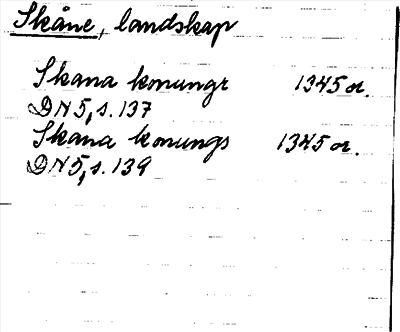 Skåne, landskap
Skana konungr 1345 or.
DN5, s. 137
Skana konungs 1345 or.
DN5, s. 139